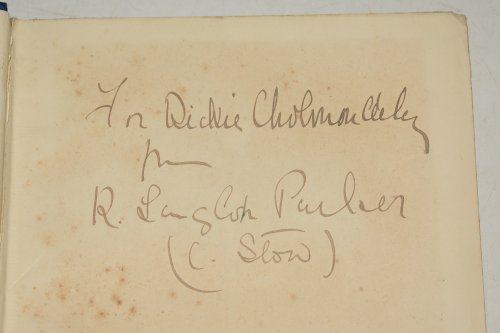 For Dickie Cholmondeley
from
R. Langton Parker
(C. Stow)